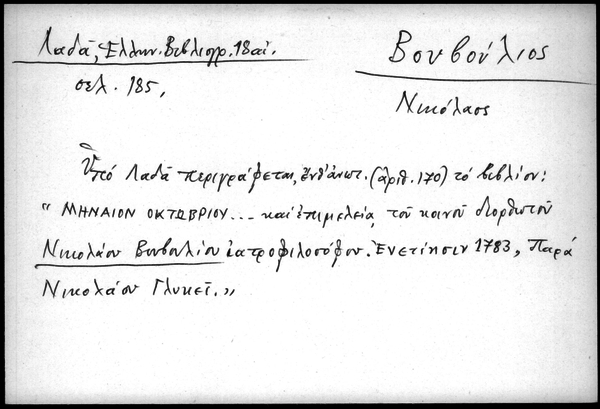 Λαδᾶ, Ἑλλην. Βιβλιογρ. 18 αἰ.
σελ. 185,
Βουβούλιος
Νικόλαος
Ὑπό Λαδᾶ περιγράφεται, ἔνθ' ἀνωτ. (ἀριθ. 170) τό βιβλίον:
“ ΜΗΝΑΙΟΝ ΟΚΤΩΒΡΙΟΥ... καί ἐπιμελείᾳ τοῦ κοινοῦ διορθωτοῦ
Νικολάου Βουβουλίου ἰατροφιλοσόφου. Ἐνετίησιν 1783, Παρά
Νικολάου Γλυκεῖ. „